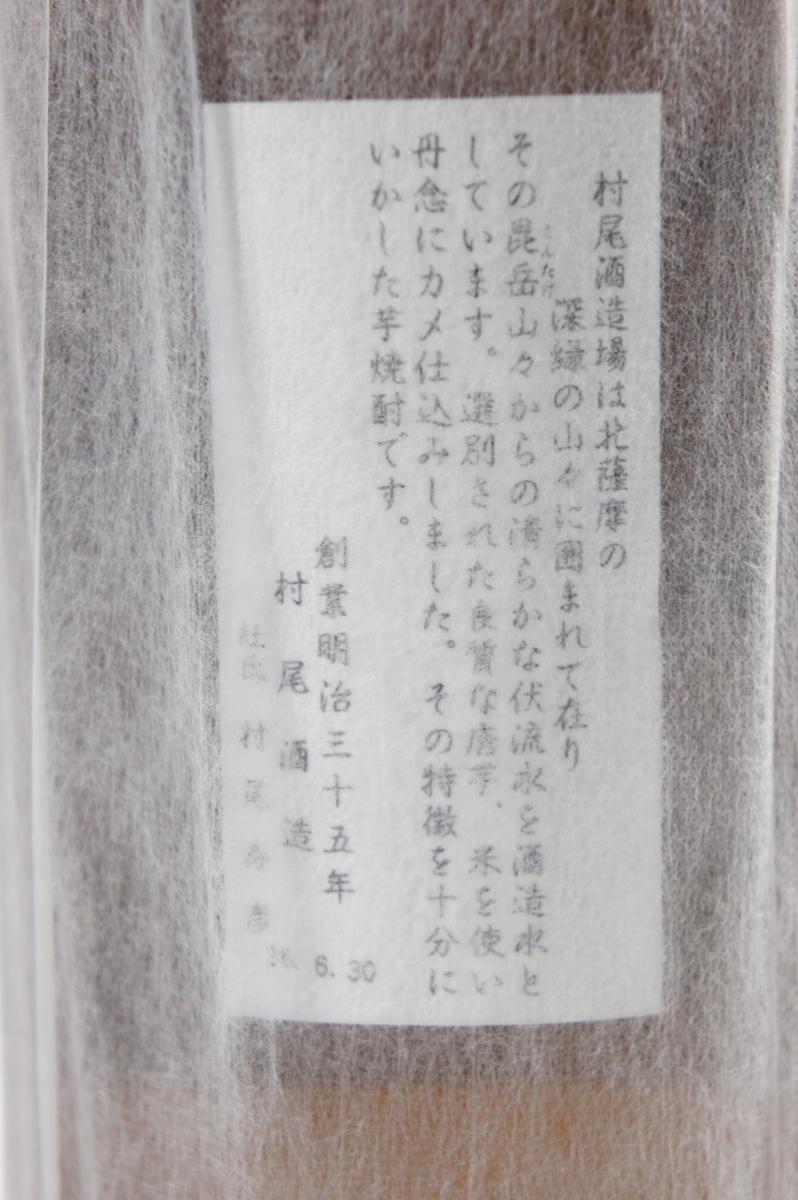 村尾酒造場は北薩摩の
深緑の山々に囲まれて在り
こんたけ
その昆岳山々からの清らかな伏流水を酒造水と
しています。選別された良質な唐芋、米を使い
丹念にカメ仕込みしました。その特徴を十分に
いかした芋焼酎です。
創業明治三十五年
村尾酒造
杜氏 村尾寿彦
26. 6. 30